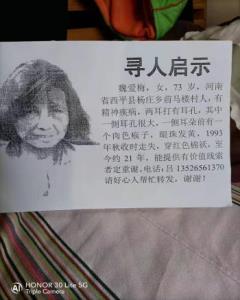 寻人启示
魏爱梅，女，73 岁，河南
省西平县杨庄乡前马楼村人，有
精神疾病，两耳打有耳孔，其中
一侧耳孔很大，一侧耳朵前有一
个肉色痣子，眼珠发黄，1993
年秋收时走失，穿红色棉袄，至
今约 21 年，能提供有价值线索
者定重谢，电话：吕 13526561370
请好心人帮忙转发，谢谢！
HONOR 30 Lite 5G
Triple Camera